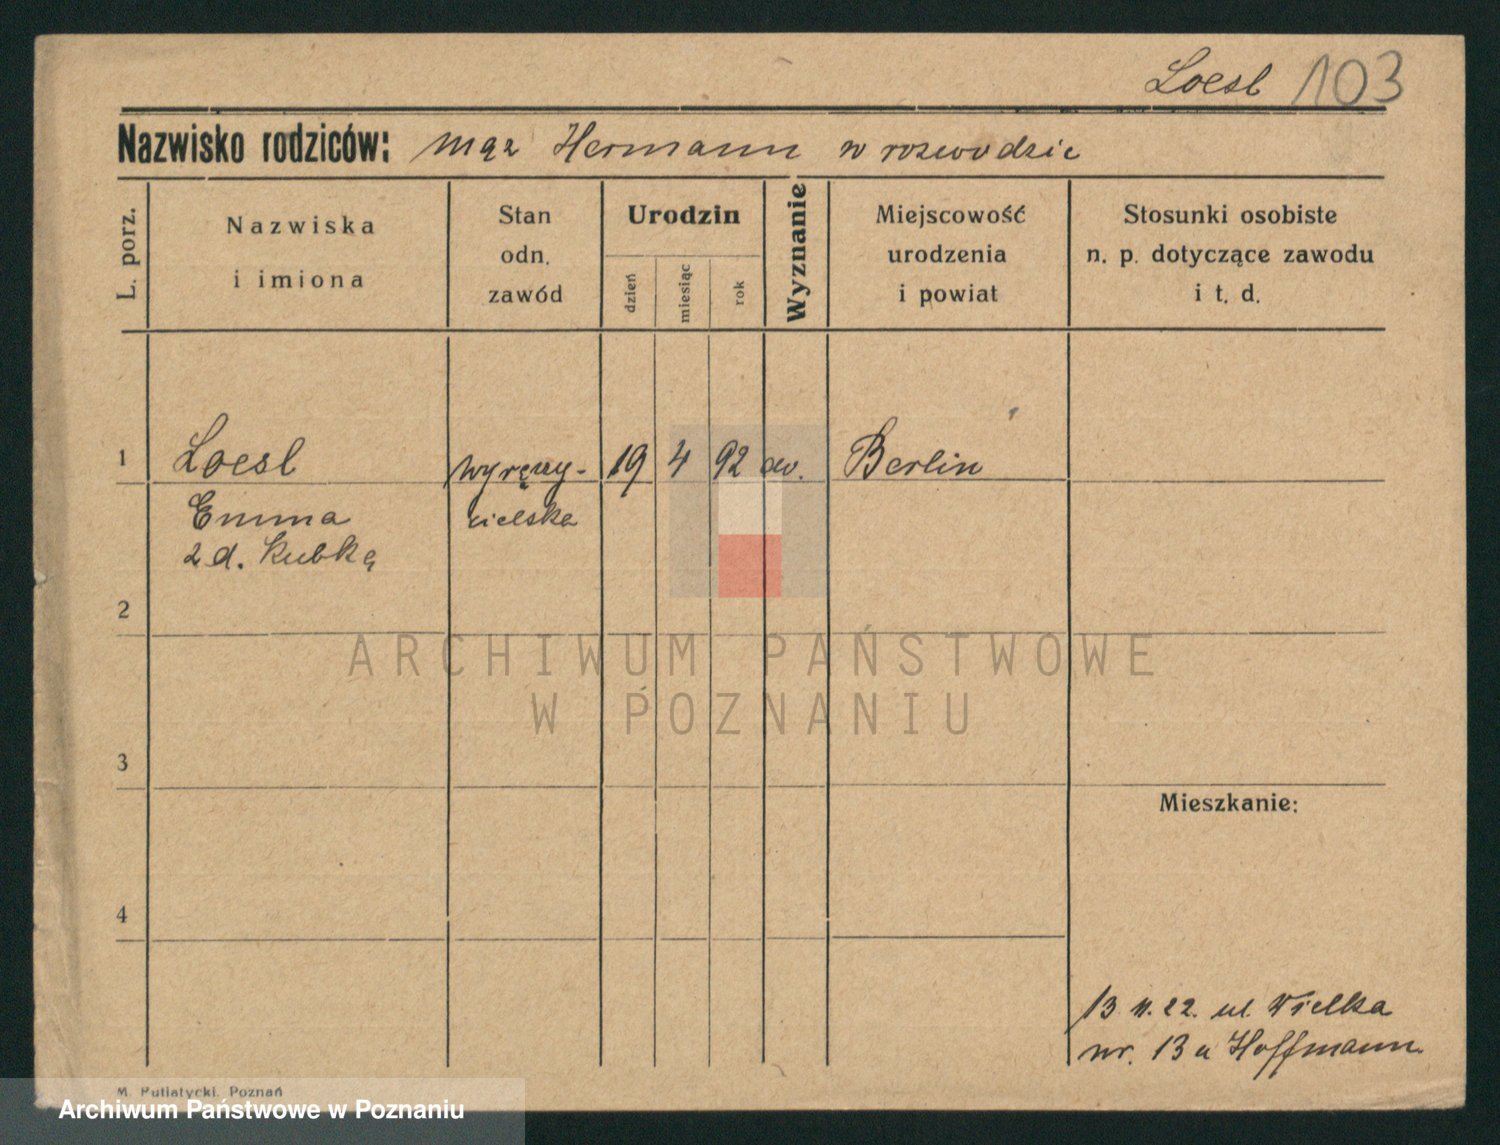 Loesl 103
Nazwisko rodziców: mąż Hermann w rozwodzie
L. porz.
Nazwiska
i imiona
Stan
odn.
zawód
Urodzin
dzień
miesiąc
rok
Wyznanie
Miejscowość
urodzenia
i powiat
Stosunki osobiste
n. p. dotyczące zawodu
i t. d.
1 Loesl 19 4 92 ew. Berlin
Emma
z d. Kubką
2
ARCHIWUM PAŃSTWOWE
W POZNANIU
3
Mieszkanie:
4
13. 11. 22. ul. Wielka
nr. 13 u Hoffmann.
M. Putiatycki. Poznań
Archiwum Państwowe w Poznaniu